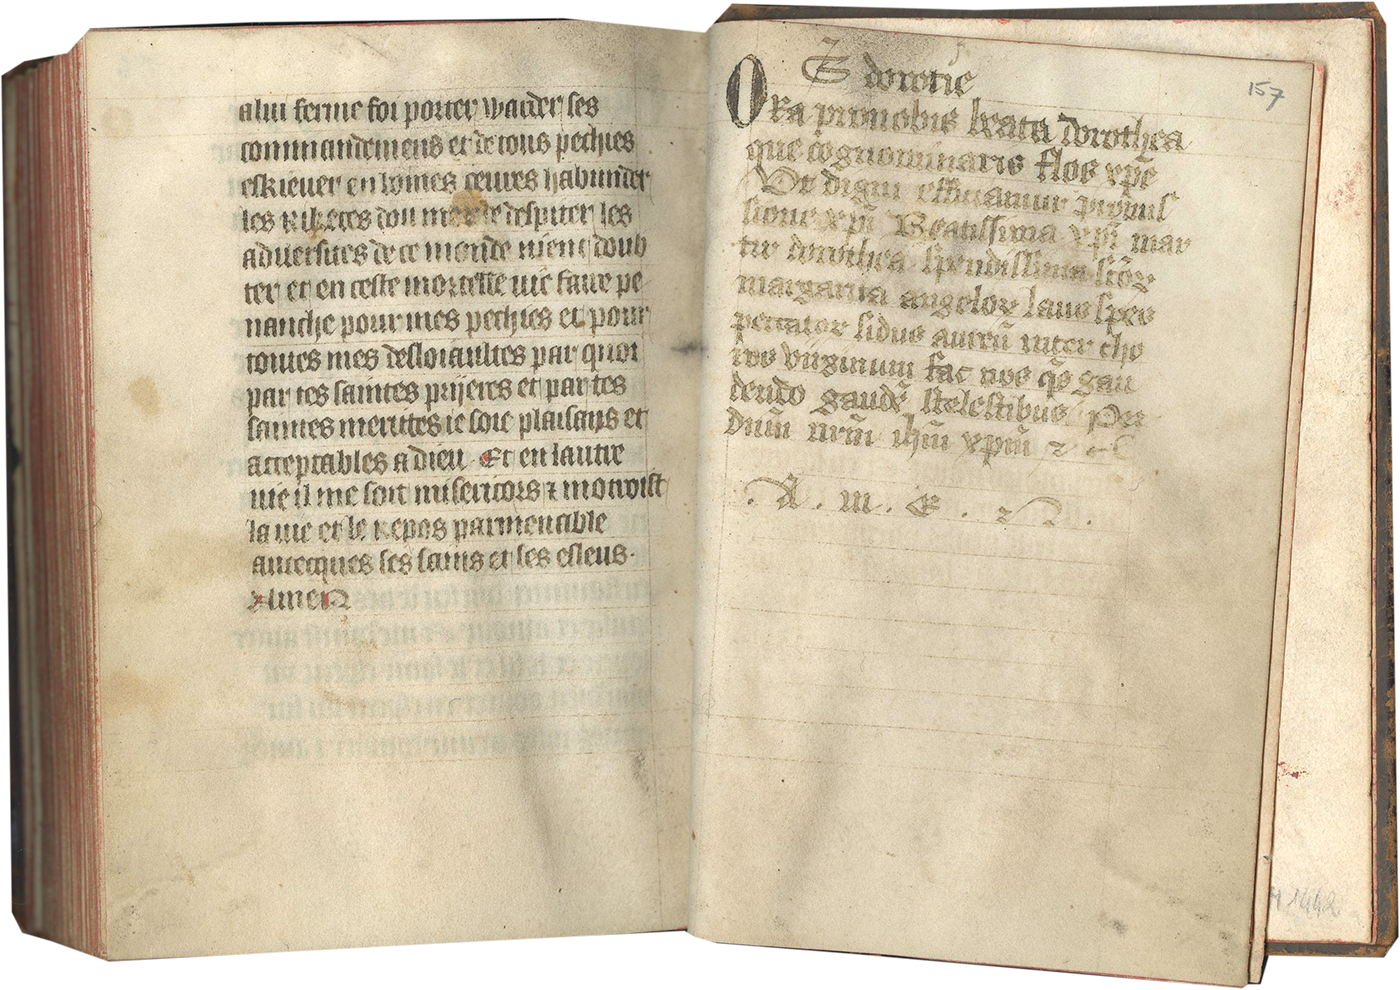 a lui ferme foi porter warder ses
commandemens et de tous pechies
eskiever en bonnes œuvres habunder
les rikeces dou monde despiter les
adversites de ce monde nient doub
ter et en ceste mortelle vie faire pe
nanche pour mes pechies et pour
toutes mes desloiaultes par quoi
par tes saintes prijeres et par tes
saintes merittes je soie plaisans et
acceptables a dieu . Et en lautre
vie il me soit misericors et motroist
la vie et le repos parmenable
avecques ses sains et ses esleus .
Amen
157
S dorotie
Ora pro nobis beata dorothea
que cognominaris flos xpē
Vt digni efficiamur promis
sione xpī Beatissima xpī mar
tir dorothea splendissima
margarita angelor laus spes
peccator sidus aureū inter cho
ros virginum fac nos
dendo celestibus Per
dnm nrm ihm xpm
. A . m . E . n .
M 1442